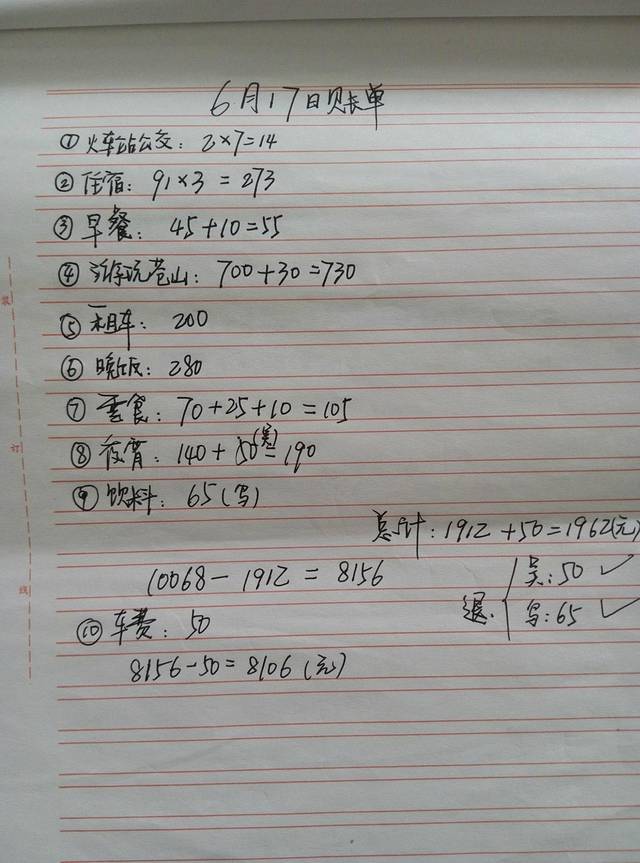 6月17日账单
① 火车站公交: 2×7=14
② 住宿: 91×3=273
③ 早餐: 45+10=55
④ 游玩苍山: 700+30=730
⑤ 租车: 200
⑥ 晚饭: 280
⑦ 零食: 70+25+10=105
⑧ 夜宵: 140+50(吴)=190
⑨ 饮料: 65(写)
总计: 1912+50=1962(元)
10068-1912=8156
退 吴:50 ✓
写:65 ✓
⑩ 车费: 50
8156-50=8106(元)
装
订
线